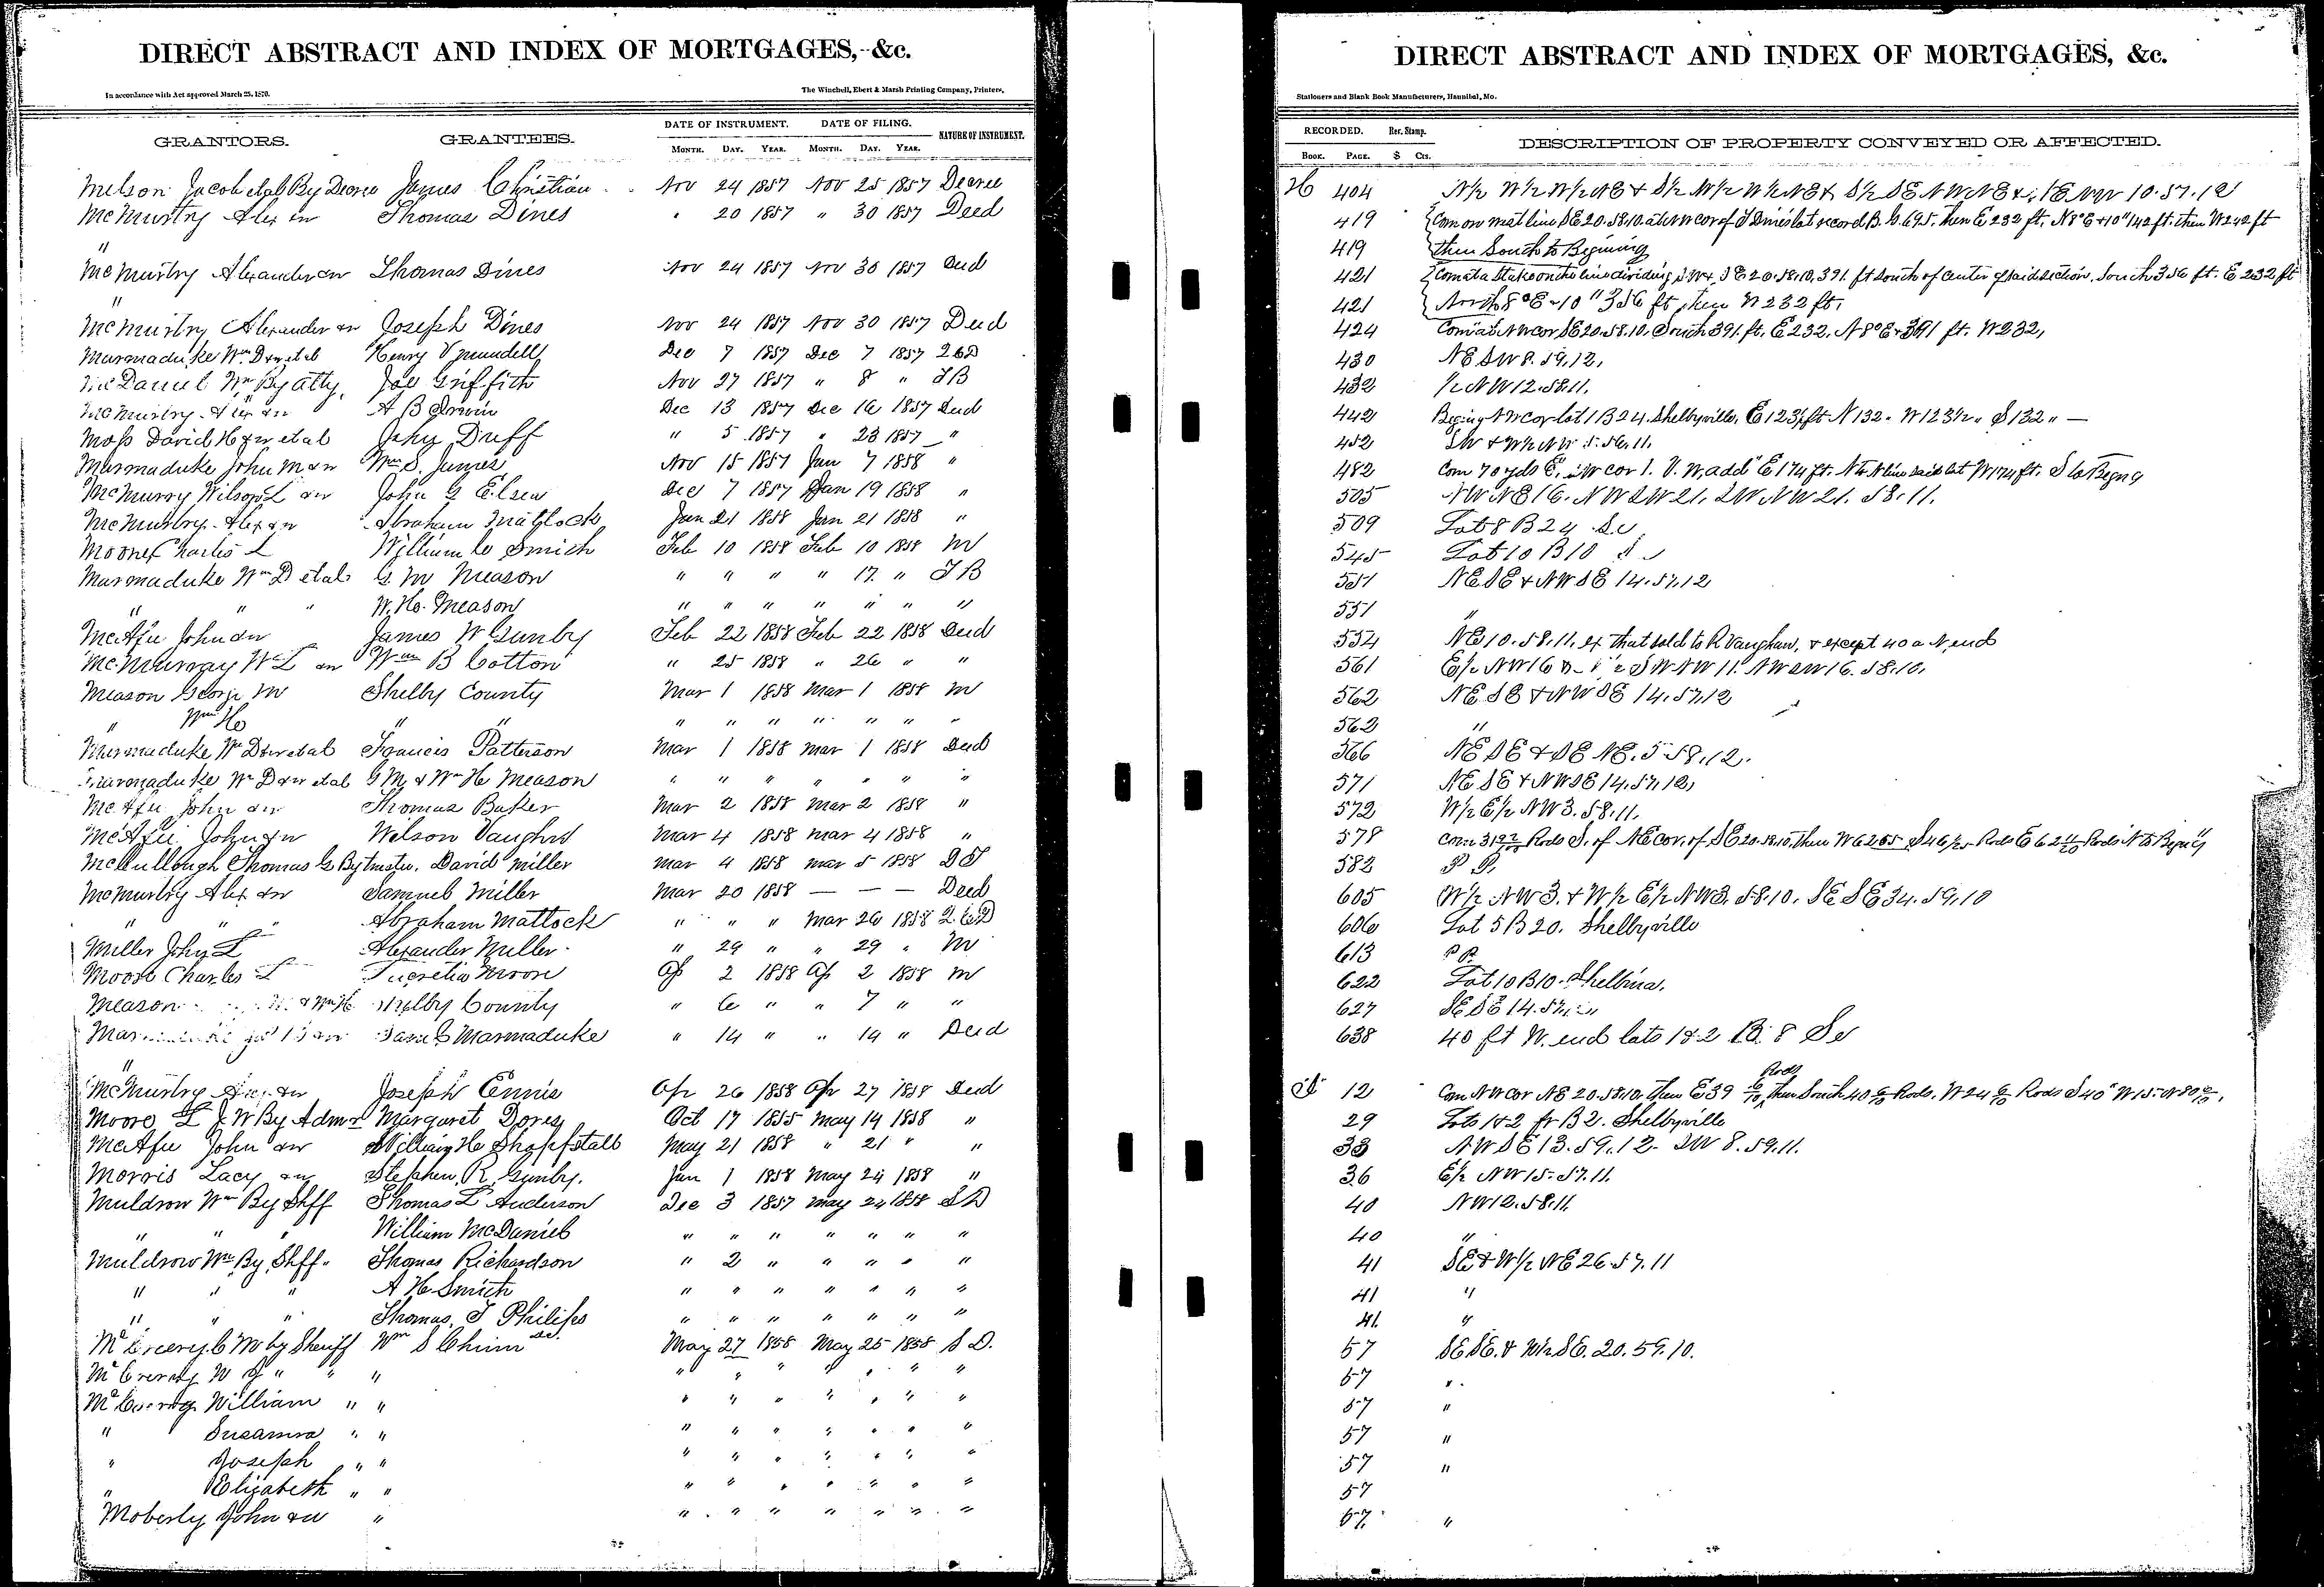 DIRECT ABSTRACT AND INDEX OF MORTGAGES, &c.
In accordance with Act approved March 25, 1870.
The Winchell, Ebert & Marsh Printing Company, Printers,
GRANTORS. GRANTEES. DATE OF INSTRUMENT. DATE OF FILING. NATURE OF INSTRUMENT.
MONTH. DAY. YEAR. MONTH. DAY. YEAR.
Melson Jacob etal By Decree James Christian Nov 24 1857 Nov 25 1857 Decree
McMurtry Alex &w Thomas Dines " 20 1857 " 30 1857 Deed
"
McMurtry Alexander &w Thomas Dines Nov 24 1857 Nov 30 1857 Deed
"
McMurtry Alexander &w Joseph Dines Nov 24 1857 Nov 30 1857 Deed
Marmaduke Wm D &w etal Henry Dec 7 1857 Dec 7 1857 2CD
McDaniel Wm By Atty. Joe Griffith Nov 27 1857 " 8 " TB
McMurtry Alex &w A B Irwin Dec 13 1857 Dec 16 1857 Deed
Moss David H &w etal John Duff " 5 1857 " 23 1857 "
Marmaduke John M &w Wm S. James Nov 15 1857 Jan 7 1858 "
McMurry Wilson L &w John G Elsea Dec 7 1857 Jan 19 1858 "
McMurtry Alex &w Abraham Matlock Jan 21 1858 Jan 21 1858 "
Moore Charles L William C Smith Feb 10 1858 Feb 10 1858 M
Marmaduke Wm D etal G. M Meason " " " " 17 " TB
" " " W. H. Meason " " " " " " "
McAfee John &w James W Gunby Feb 22 1858 Feb 22 1858 Deed
McMurray W L &w Wm B Cotton " 25 1858 " 26 " "
Meason George M Shelby County Mar 1 1858 Mar 1 1858 M
" Wm H " " " " " " " "
Marmaduke Wm D &w etal Francis Patterson Mar 1 1858 Mar 1 1858 Deed
Marmaduke Wm D &w etal G M. & Wm H Meason " " " " " " "
McAfee John &w Thomas Baker Mar 2 1858 Mar 2 1858 "
McAfee John &w Wilson Vaughn Mar 4 1858 Mar 4 1858 "
McCullough Thomas G By trustee. David Miller Mar 4 1858 Mar 5 1858 DT
McMurtry Alex &w Samuel Miller Mar 20 1858 — — — Deed
" " " Abraham Mattock " " " Mar 26 1858 2.CD
Miller John L Alexander Miller " 29 " " 29 " M
Moore Charles L Lucretia Moore Ap 2 1858 Ap 2 1858 M
Meason & Wm H Shelby County " 6 " " 7 " "
Marmaduke &w James Marmaduke " 14 " " 14 " Deed
"
McMurtry Alex &w Joseph Ennis Apr 26 1858 Apr 27 1858 Deed
Moore L J W By Admr Margaret Dores Oct 17 1855 May 14 1858 "
McAfee John &w William H Shopfstall May 21 1858 " 21 " "
Morris Lacy &w Stephen R. Gunby. Jan 1 1858 May 24 1858 "
Muldrow Wm By Shff Thomas L Anderson Dec 3 1857 May 24 1858 SD
" " " William McDaniel " " " " " " "
Muldrow Wm By Shff. Thomas Richardson " 2 " " " " "
" " " A H Smith " " " " " " "
" " " Thomas, T Philips " " " " " " "
McCreery C M by Sheriff Wm S Chinn May 27 1858 May 25 1858 S D.
McCreery W J " " " " " " " " " "
McCreery William " " " " " " " " "
" Susanna " " " " " " " " "
" Joseph " " " " " " " " "
" Elizabeth " " " " " " " " "
Moberly John &w " " " " " " " "
DIRECT ABSTRACT AND INDEX OF MORTGAGES, &c.
Stationers and Blank Book Manufacturers, Hannibal, Mo.
RECORDED. Rev. Stamp. DESCRIPTION OF PROPERTY CONVEYED OR AFFECTED.
BOOK. PAGE. $ Cts.
H 404 N½ W½ W½ NE & S½ N½ W½ NE & S½ SE NW NE 10.57.12
419 Com on west line SE 20.58.10 at NW cor of T Dines lot record B. G. 695, then E 232 ft, N 8° E & 10" 142 ft. then W 242 ft
419 then South to Begining
421 Com at a Stake on the line dividing SW & SE 20.58.10, 391 ft South of center of said section, South 356 ft. E 232 ft
421 North 8° E 10" 356 ft then W 232 ft.
424 Com at NW cor SE 20.58.10, South 391. ft, E 232, N 8° E 391 ft. W 232,
430 NE SW 8.59.12.
432 ½ NW 12.58.11.
442 Begin NW cor lot 1 B 24 Shelbyville, E 123½ ft N 132 " W 123½ " S 132 " —
452 SW & W½ NW 5.56.11.
482 Com 70 yds E. NW cor 1. V. W, add" E 174 ft. N to N line said lot W 174 ft. S to Begng
505 NW NE 16. NW SW 21. SW NW 21. 58.11.
509 Lot 8 B 24 Sv
545 Lot 10 B 10 S
551 NE SE & NW SE 14.57.12
551 "
554 NE 10.58.11. ex that sold to R Vaughan, & except 40 a N, end
561 E½ NW 16 SW NW 11. NW SW 16. 58.10.
562 NE SE & NW SE 14.57.12
562 "
566 NE SE & SE NE. 5 58.12.
571 NE SE & NW SE 14.57.12,
572 W½ E½ NW 3.58.11.
578 Com Rods S. of NE cor. of SE 20.58.10, then W Rods E Rods N to Begng
582 P P.
605 W½ NW 3. & W½ E½ NW 3, 58.10. SE SE 34.59.10
606 Lot 5 B 20. Shelbyville
613 P P.
622 Lot 10 B 10. Shelbina.
627 SE SE 14.57.
638 40 ft W. end lots 1 & 2 B. 8 Sv
I 12 Com NW cor NE 20.58.10, then E 39 6/10 Rods then South 40 Rods. W 24 Rods
29 Lots 1 & 2 fr B 2. Shelbyville
33 NW SE 13.59.12. SW 8.59.11.
36 E½ NW 15.57.11.
40 NW 12.58.11.
40 "
41 SE & W½ NE 26.57.11
41 "
41 "
57 SE SE. & W½ SE. 20.59.10.
57 "
57 "
57 "
57 "
57
57 "